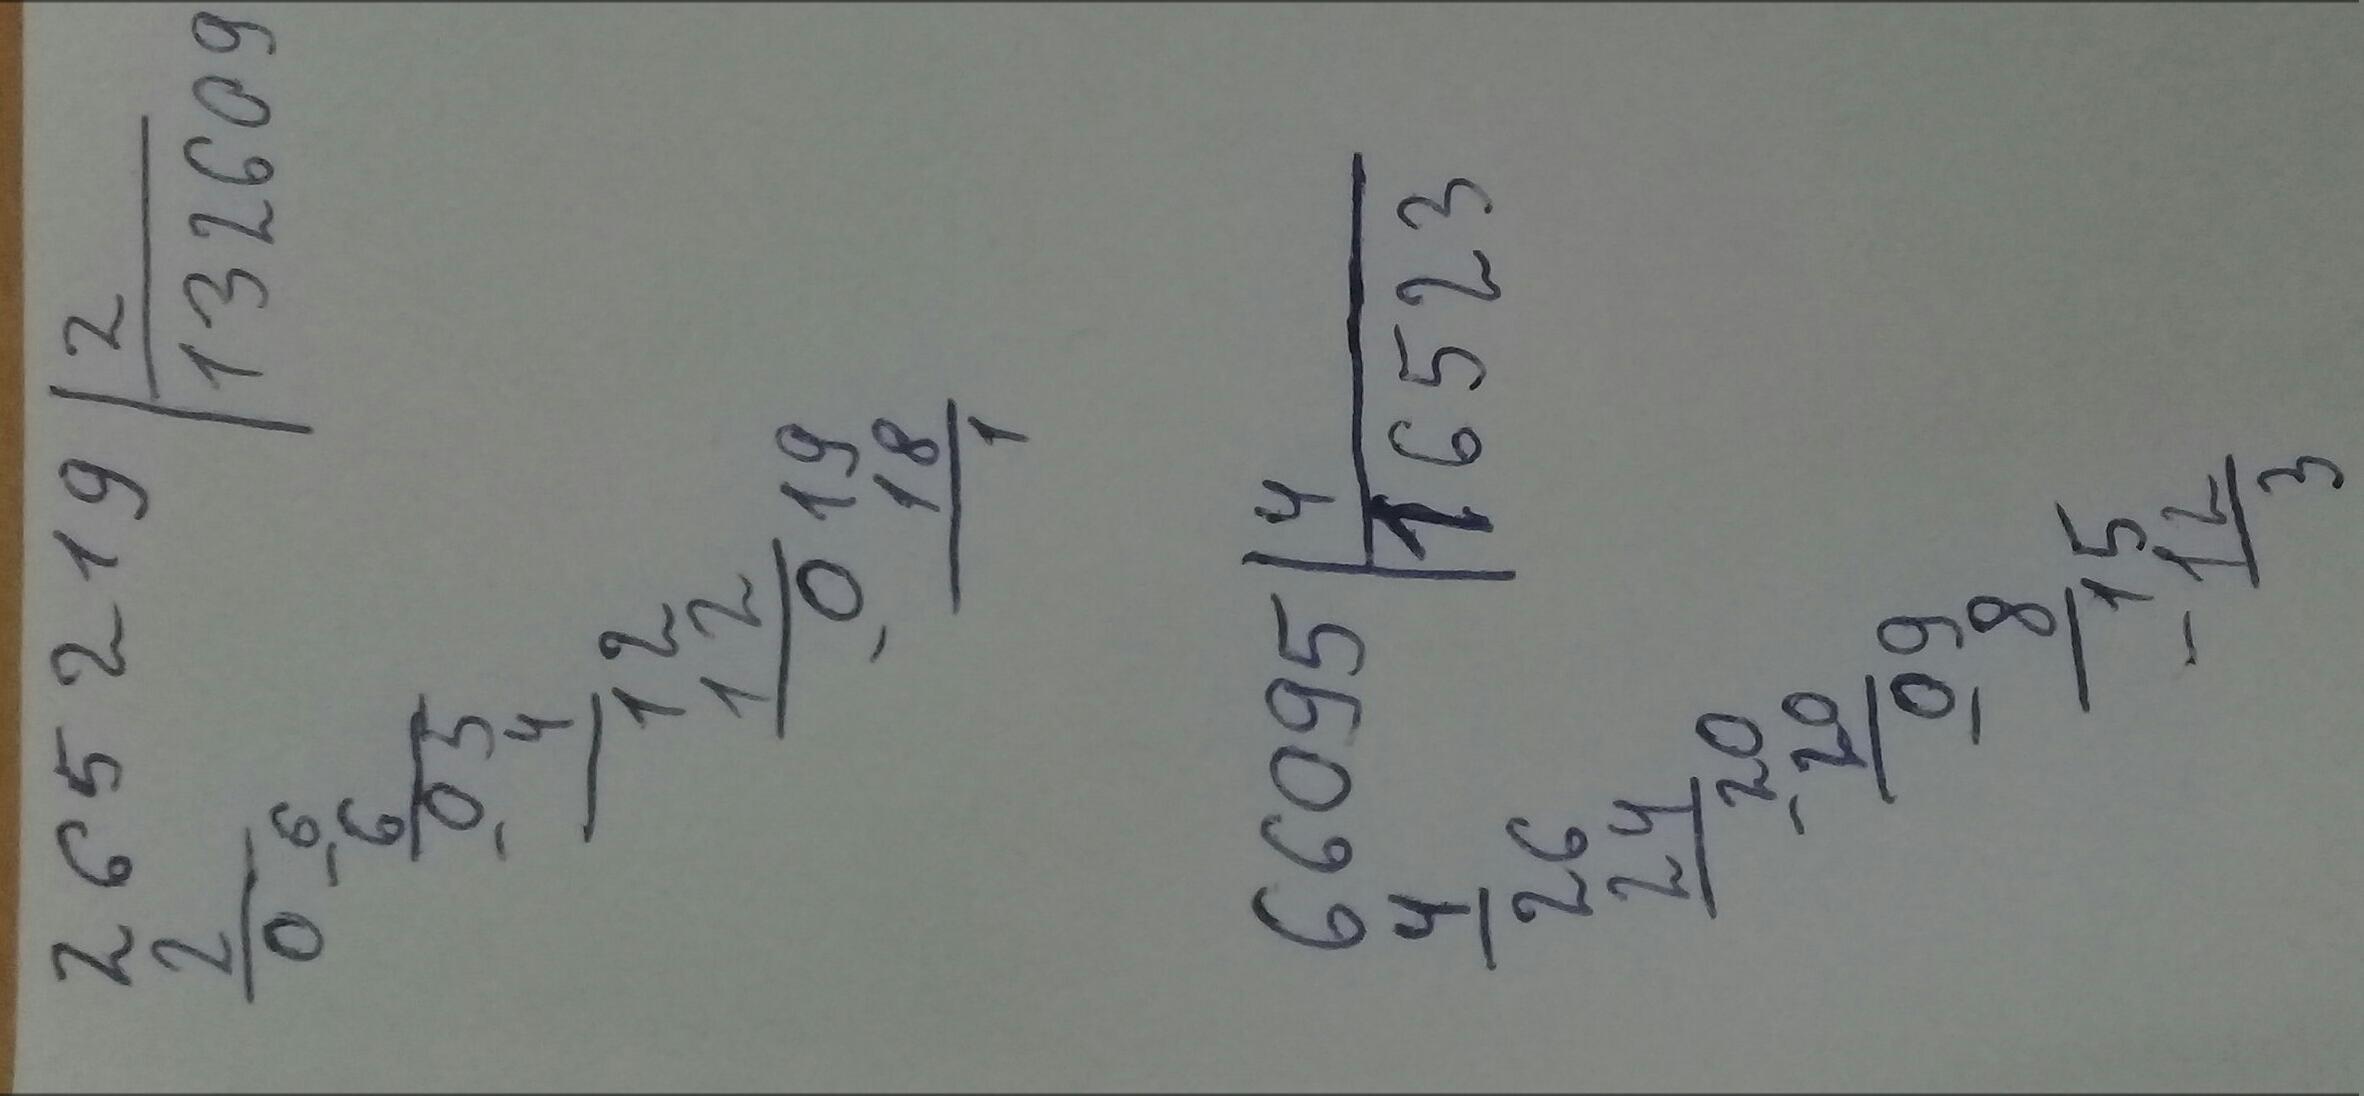 265219 | 2
2 132609
06
-6
05
- 4
12
12
019
- 18
1
66095 | 4
4 16523
26
24
20
-20
09
- 8
15
- 12
3